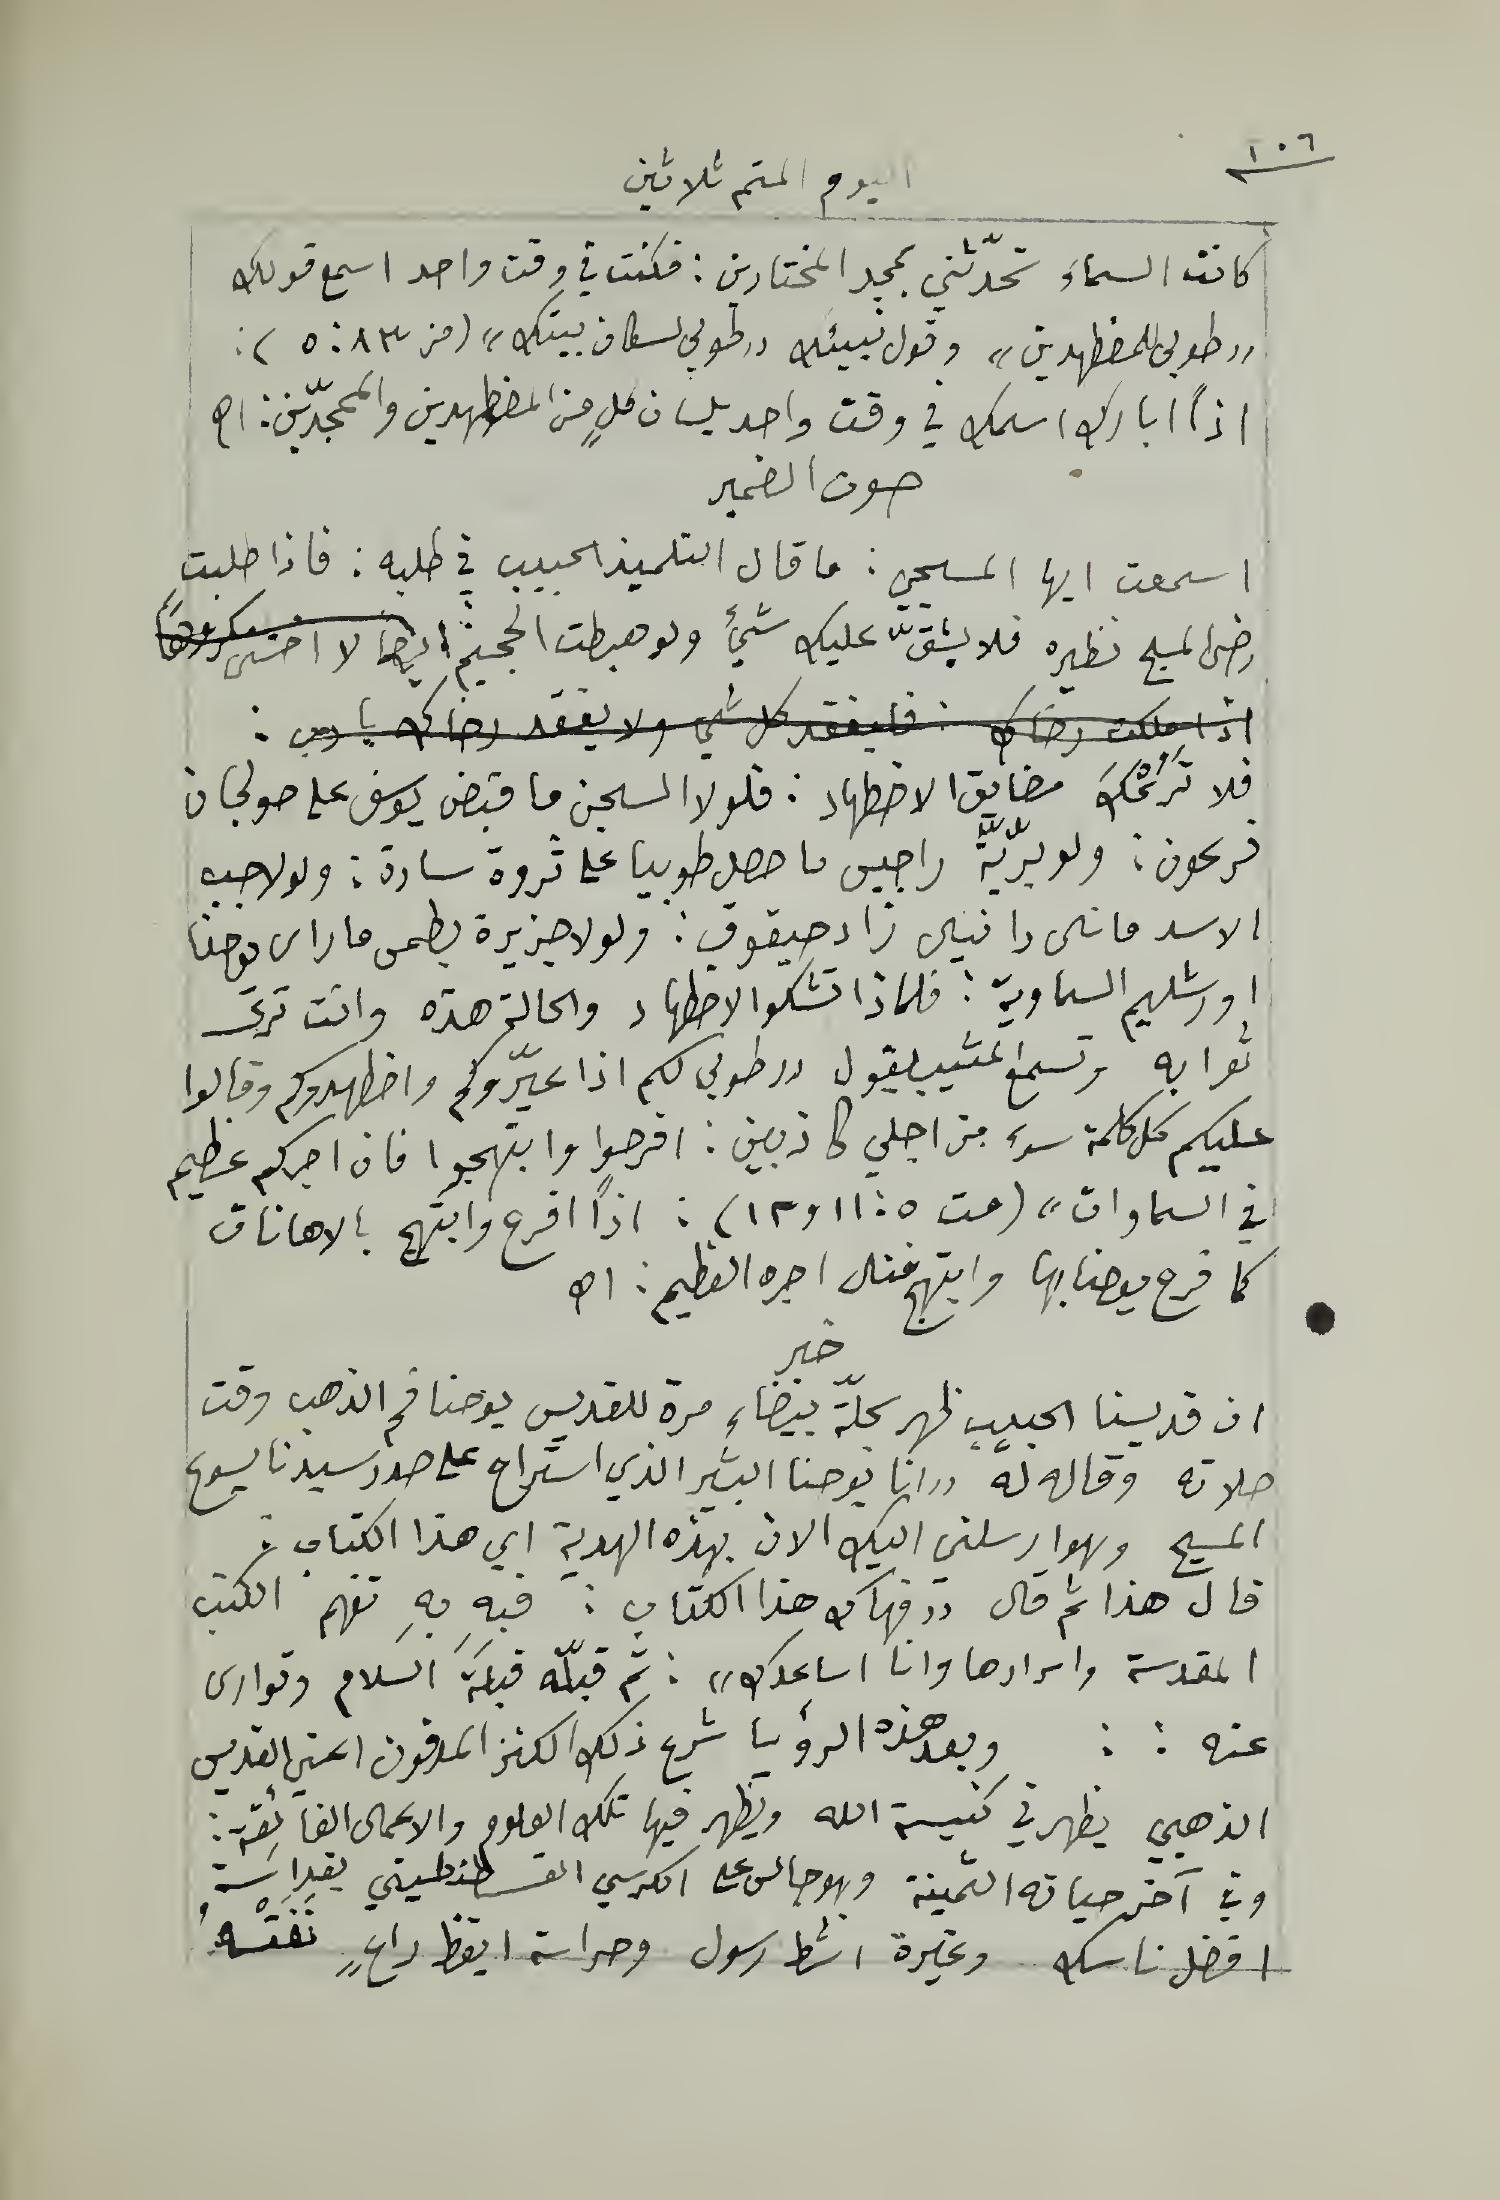 ١٠٦
اليوم المتم ثلاثين
كانت السماء تحدّثني بمجد المختارين : فكنت في وقت واحد اسمع قولك
„ طوبى للمضطهدين „ وقول نبيئك „ طوبى لسكان بيتك „ (مز ٨٣ : ٥ ) :
اذًا ابارك اسمك في وقت واحد بلسان كلٍ من المضطهدين والممجدّين : اه
صوت الضمير
اسمعت ايها المسيحي : ما قال التلميذ الحبيب في طلبه : فاذا طلبت
رضى المسيح نظيره فلا يشقّ عليك شيءٌ ولو هبطت الجحيم ايضا لا اخشى مكروهًا
اذا ملكت رضاك : فليفقد كل شي ولا يفقد رضاك يا رب :
فلا تُرْعْكَ مضايق الاضطهاد : فلولا السجن ما قبض يوسف على صولجان
فرعون : ولو بريّة راجيس ما حصل طوبيا على ثروة سارة : ولولا جب
الاسد ما نال دانيال زاد حبقوق : ولولا جزيرة بطمس ما راى يوحنا
اورشليم السماوية : فلماذا تشكو الاضطهاد والحالة هذه وانت ترى
ثوابه وتسمع المثيب يقول „ طوبى لكم اذا عيّروكم واضطهدوكم وقالوا
عليكم كل كلمة سوء من اجلي كاذبين : افرحوا وابتهجوا فان اجركم عظيم
في السماوات „ (مت ٥ : ١١ و١٢) : اذًا افرح وابتهج بالاهانات
كما فرح يوحنا بها وابتهج فنال اجره العظيم : اه
خبر
ان قديسنا الحبيب ظهر بحلّة بيضاء مرة للقديس يوحنا فم الذهب وقت
صلاته وقال له „ انا يوحنا البشير الذي استراح على صدر سيدنا يسوع
المسيح وهو ارسلني اليك الان بهذه الهدية اي هذا الكتاب :
قال هذا ثم قال „ فهاك هذا الكتاب : فبه بهِ تفهم الكتب
المقدسة واسرارها وانا اساعدك „ : ثم قبّله قبلَةَ السلام وتوارى
عنه : : وبعد هذه الرؤيا شرع ذلك الكنز المدفون اعني القديس
الذهبي يظهر في كنيسة الله ويظهر فيها تلك العلوم والاعمال الفائقة :
وفي آخر حياته الثمينة وهو جالس على الكرسي القسطنطيني بقداسة
افضل ناسك وغيرة انشط رسول وحراسة ايقظ راعٍ